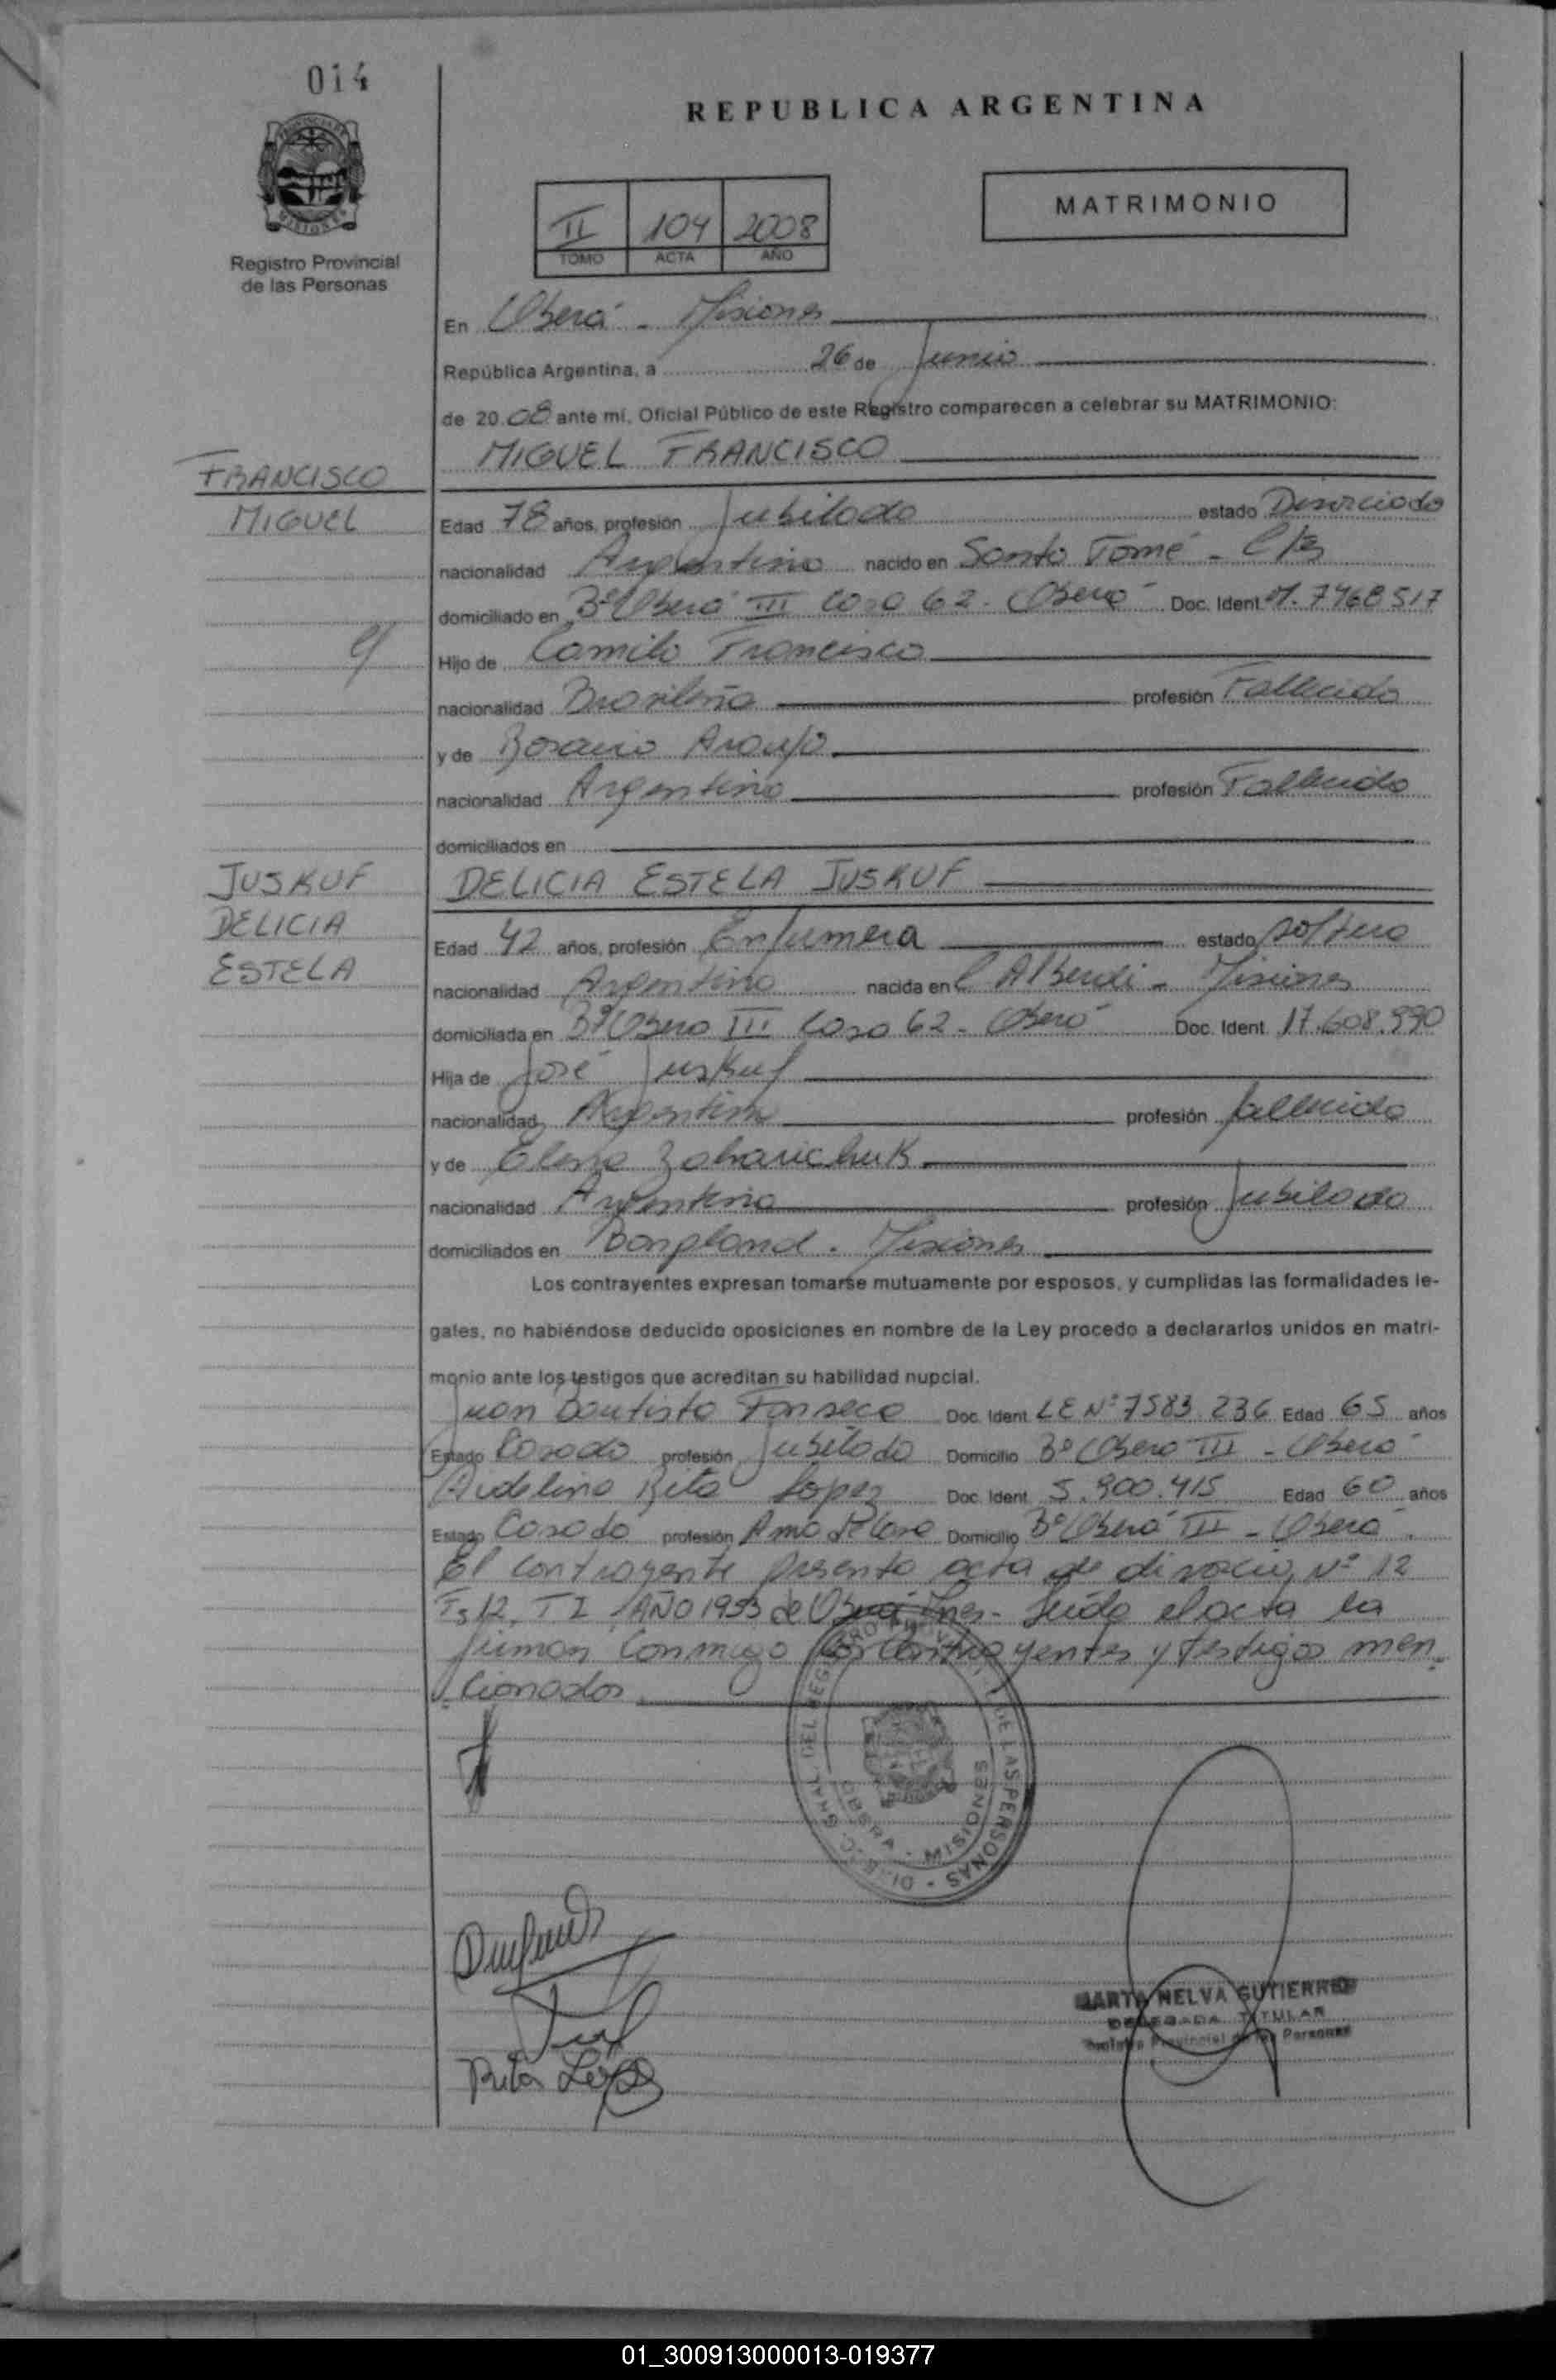 014
REPUBLICA ARGENTINA
PROVINCIA DE
MISIONES
Registro Provincial
de las Personas
II 104 2008
TOMO ACTA AÑO
MATRIMONIO
En Oberá - Misiones
República Argentina, a 26 de Junio
de 2008 ante mí, Oficial Público de este Registro comparecen a celebrar su MATRIMONIO:
FRANCISCO
MIGUEL
MIGUEL FRANCISCO
Edad 78 años, profesión Jubilado estado Divorciado
nacionalidad Argentina nacido en Santo Tomé -
domiciliado en Bº Oberá III Casa 62 - Oberá Doc. Ident. M. 7468517
Hijo de Camilo Francisco
nacionalidad Brasileña profesión Fallecido
y de Rosario Araujo
nacionalidad Argentina profesión Fallecida
domiciliados en
JUSKUF
DELICIA
ESTELA
DELICIA ESTELA JUSKUF
Edad 42 años, profesión Enfermera estado soltera
nacionalidad Argentina nacida en C Alberdi - Misiones
domiciliada en Bº Oberá III Casa 62 - Oberá Doc. Ident. 17.608.990
Hija de José Juskuf
nacionalidad Argentina profesión fallecido
y de Elena Zaharichuk
nacionalidad Argentina profesión Jubilada
domiciliados en Bonpland. Misiones
Los contrayentes expresan tomarse mutuamente por esposos, y cumplidas las formalidades le-
gales, no habiéndose deducido oposiciones en nombre de la Ley procedo a declararlos unidos en matri-
monio ante los testigos que acreditan su habilidad nupcial.
Juan Bautista Fonseca Doc. Ident. LE Nº 7583.236 Edad 65 años
Estado Casado profesión Jubilado Domicilio Bº Oberá III - Oberá
Aidelina Rita Lopez Doc. Ident. 5.900.415 Edad 60 años
Estado Casada profesión Ama de Casa Domicilio Bº Oberá III - Oberá.
El contrayente presenta acta de divorcio Nº 12
Fs 12. T I AÑO 1953 de Oberá Mnes- Leída el acta la
firman Conmigo los Contrayentes y testigos men
cionados.
REGISTRO DE LAS PERSONAS
OBERA - MISIONES
Rita López
MARTA NELVA GUTIERREZ
DELEGADA TITULAR
Registro Provincial de las Personas
01_300913000013-019377